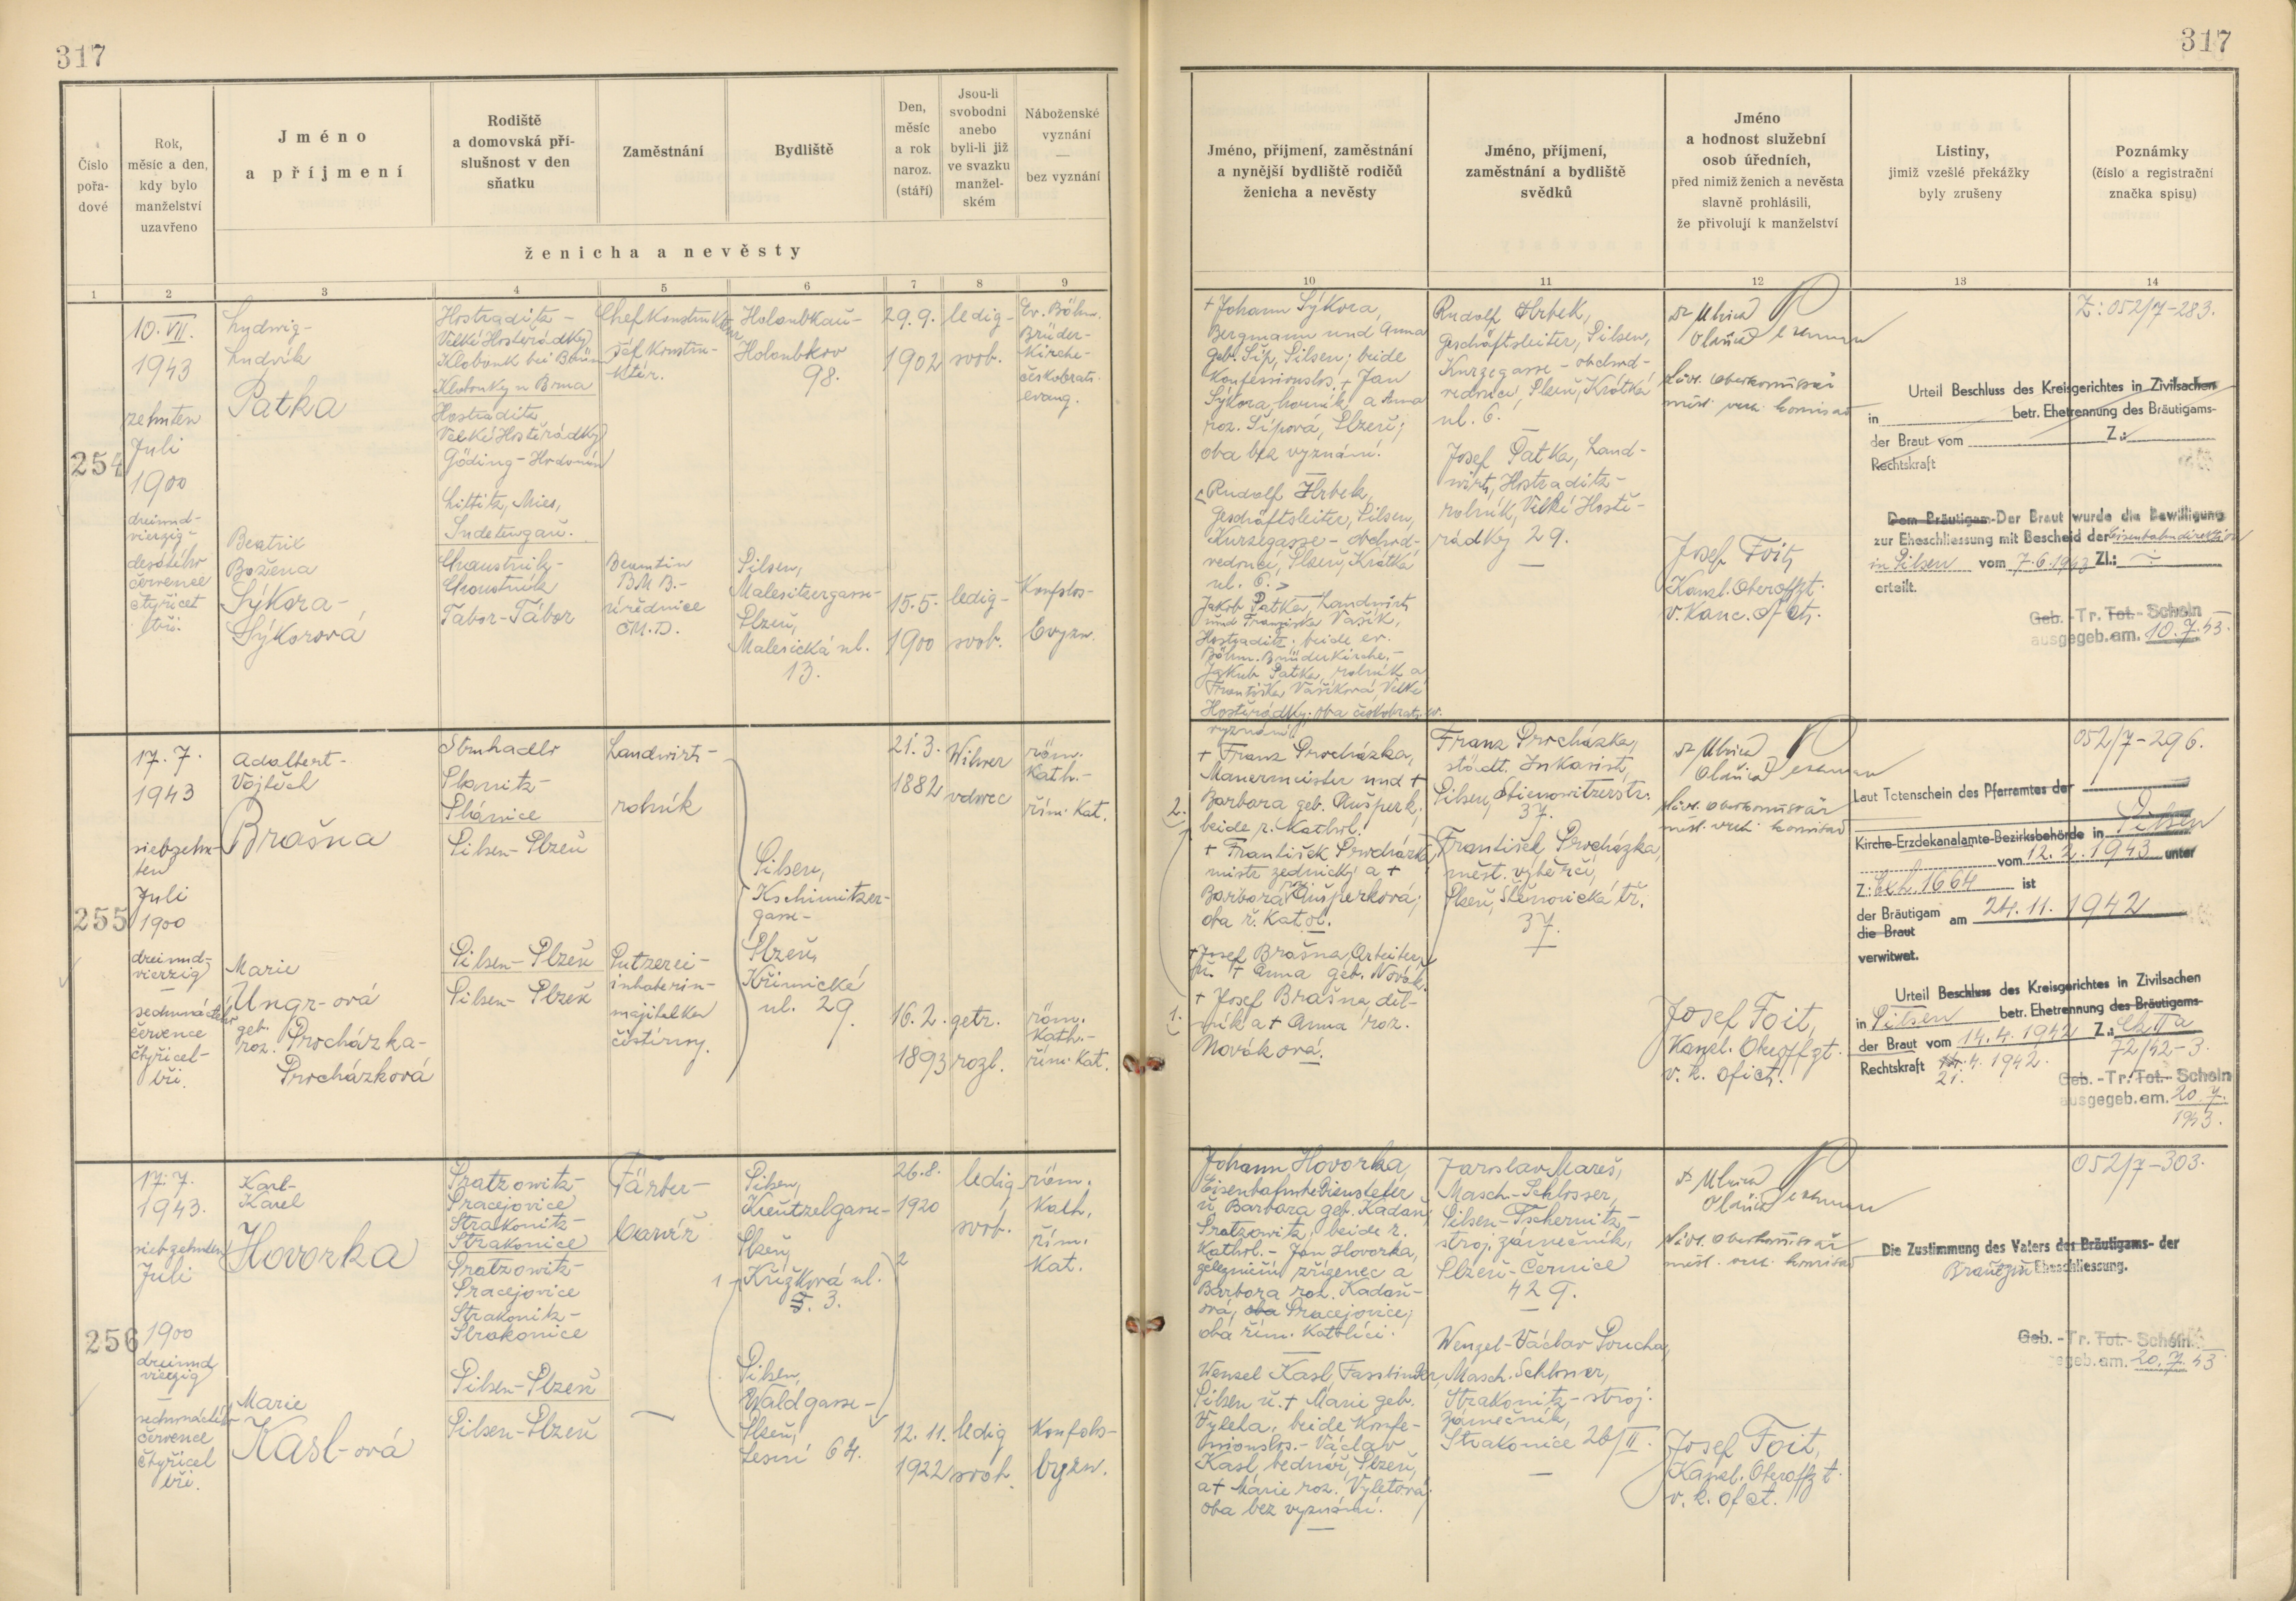 317
317
Číslo
pořa-
dové
Rok,
měsíc a den,
kdy bylo
manželství
uzavřeno
Jméno
a příjmení
Rodiště
a domovská pří-
slušnost v den
sňatku
Zaměstnání
Bydliště
Den,
měsíc
a rok
naroz.
(stáří)
Jsou-li
svobodni
anebo
byli-li již
ve svazku
manžel-
ském
Náboženské
vyznání
—
bez vyznání
ženicha a nevěsty
Jméno, příjmení, zaměstnání
a nynější bydliště rodičů
ženicha a nevěsty
Jméno, příjmení,
zaměstnání a bydliště
svědků
Jméno
a hodnost služební
osob úředních,
před nimiž ženich a nevěsta
slavně prohlásili,
že přivolují k manželství
Listiny,
jimiž vzešlé překážky
byly zrušeny
Poznámky
(číslo a registrační
značka spisu)
1 2 3 4 5 6 7 8 9
10 11 12 13 14
254
10. VII.
1943
zehnten
Juli
1900
dreiund-
vierzig -
desátého
července
čtyřicet
tři.
Ludwig -
Ludvík
Patka
Hostraditz -
Velké Hostěrádky
Klobouk bei Brünn
Klobouky u Brna
Hostraditz
Velké Hostěrádky
Göding - Hodonín
Chefkonstrukteur
šéfkonstru-
ktér.
Holoubkau -
Holoubkov
98.
29. 9.
1902
ledig -
svob.
Ev. Böhm.
Brüder-
Kirche -
českobrats.
evang.
Beatrix
Božena
Sýkora -
Sýkorová
Littitz, Mies,
Sudetengau.
Chaustnik -
Choustník
Tabor - Tábor
Beamtin
BMB. -
úřednice
ČMD.
Pilsen,
Malesitzergasse -
Plzeň,
Malesická ul.
13.
15. 5.
1900
ledig -
svob.
Konfslos -
bvyzn.
+ Johann Sýkora,
Bergmann und Anna
geb. Šíp, Pilsen; beide
Konfessionslos. + Jan
Sýkora, horník a Anna
roz. Šípová, Plzeň;
oba bez vyznání.
Rudolf Hrbek,
Geschäftsleiter, Pilsen,
Kurzegasse - obchod-
vedoucí, Plzeň, Krátká
ul. 6. >
Jakob Patka, Landwirt,
und Franziska Vašík,
Hostraditz; beide ev.
Böhm. Brüderkirche. -
Jakub Patka, rolník a
Františka Vašíková, Velké
Hostěrádky; oba českobratr. ev.
vyznání.
Rudolf Hrbek,
Geschäftsleiter, Pilsen,
Kurzegasse - obchod-
vedoucí, Plzeň, Krátká
ul. 6.
Josef Patka, Land-
wirt, Hostraditz -
rolník, Velké Hostě-
rádky 29.
Josef Foit,
Kanzl. Oberoffzt.
v. kanc. ofct.
Urteil Beschluss des Kreisgerichtes in Zivilsachen
in betr. Ehetrennung des Bräutigams-
der Braut vom Z.:
Rechtskraft
Dem Bräutigam - Der Braut wurde die Bewilligung
zur Eheschliessung mit Bescheid der Eisenbahndirektion
in Pilsen vom 7. 6. 1943 Zl.:
erteilt.
Z: 052/7 - 283.
Geb. - Tr. Tot. - Schein
ausgegeb. am. 10. 7. 43.
255
17. 7.
1943
siebzehn-
ten
Juli
1900
dreiund-
vierzig
sedmnáctého
července
čtyřicet-
tři.
Adalbert -
Vojtěch
Brašna
Strnhadlo
Planitz -
Plánice
Pilsen - Plzeň
Landwirt -
rolník
Pilsen,
Kschimitzer-
gasse -
Plzeň,
Křimická
ul. 29.
21. 3.
1882
Witwer
vdovec
röm.
kath. -
řím. kat.
Marie
Ungr-ová
geb.
roz. Procházka -
Procházková
Pilsen - Plzeň
Pilsen - Plzeň
Putzerei -
inhaberin -
majitelka
čistírny.
16. 2.
1893
getr.
rozl.
röm.
kath. -
řím. kat.
2.
+ Franz Procházka,
Mauermeister und +
Barbara geb. Aušperk;
beide r. kathol.
+ František Procházka,
mistr zednický a +
Barbora Aušperková;
oba ř. katol.
+ Josef Brašna, Arbeiter
u. + Anna geb. Novák.
1.
+ Josef Brašna, děl-
ník a + Anna roz.
Nováková.
Franz Procházka,
städt. Inkasist,
Pilsen, Stienowitzerstr.
37.
František Procházka,
měst. výběrčí,
Plzeň, Štěnovická tř.
37.
Josef Foit,
Kanzl. Oberoffzt.
v. k. ofict.
Laut Totenschein des Pfarramtes der
Kirche-Erzdekanalamte-Bezirksbehörde in Pilsen
vom 12. 2. 1943 unter
Z: Exh. 1664 ist
der Bräutigam am 24. 11. 1942
die Braut
verwitwet.
Urteil Beschluss des Kreisgerichtes in Zivilsachen
in Pilsen betr. Ehetrennung des Bräutigams-
der Braut vom 14. 4. 1942 Z.: Ck IIa
72/42 - 3.
Rechtskraft 4. 1942.
21.
052/7 - 296.
Geb. - Tr. Tot. - Schein
ausgegeb. am. 20. 7.
1943.
256
17. 7.
1943.
siebzehnten
Juli
1900
dreiund
vierzig
—
sedmnáctého
července
čtyřicet
tři.
Karl -
Karel
Hovorka
Pratzowitz -
Pracejovice
Strakonitz -
Strakonice
Pratzowitz -
Pracejovice
Strakonitz -
Strakonice
Färber -
barvíř
Pilsen,
Kreutzelgasse -
Plzeň,
Křížková ul.
3.
26. 8.
1920
ledig
svob.
röm.
kath.
řím.
kat.
Marie
Kasl-ová
Pilsen - Plzeň
Pilsen - Plzeň
Pilsen,
Waldgasse -
Plzeň,
Lesní 64.
12. 11.
1922
ledig
svob.
Konfslos -
bvyzn.
Johann Hovorka,
Eisenbahnbediensteter
u. Barbara geb. Kadaň,
Pratzowitz; beide r.
kathol. - Jan Hovorka,
železniční zřízenec a
Barbora roz. Kadaň-
ová, oba Pracejovice;
oba řím. katolíci.
Wenzel Kasl, Fassbinder,
Pilsen u. + Marie geb.
Vyleta; beide konfe-
ssionslos. - Václav
Kasl, bednář, Plzeň
a + Marie roz. Vyletová;
oba bez vyznání.
Jaroslav Mareš,
Masch.-Schlosser,
Pilsen - Tschernitz -
stroj. zámečník,
Plzeň - Černice
429.
Wenzel - Václav Poucha,
Masch. Schlosser,
Strakonitz - stroj.
zámečník,
Strakonice 26/II.
Josef Foit,
Kanzl. Oberoffzt.
v. k. ofct.
Die Zustimmung des Vaters des Bräutigams- der
Braut zur Eheschliessung.
052/7 - 303.
Geb. - Tr. Tot. - Schein
geb. am. 20. 7. 43